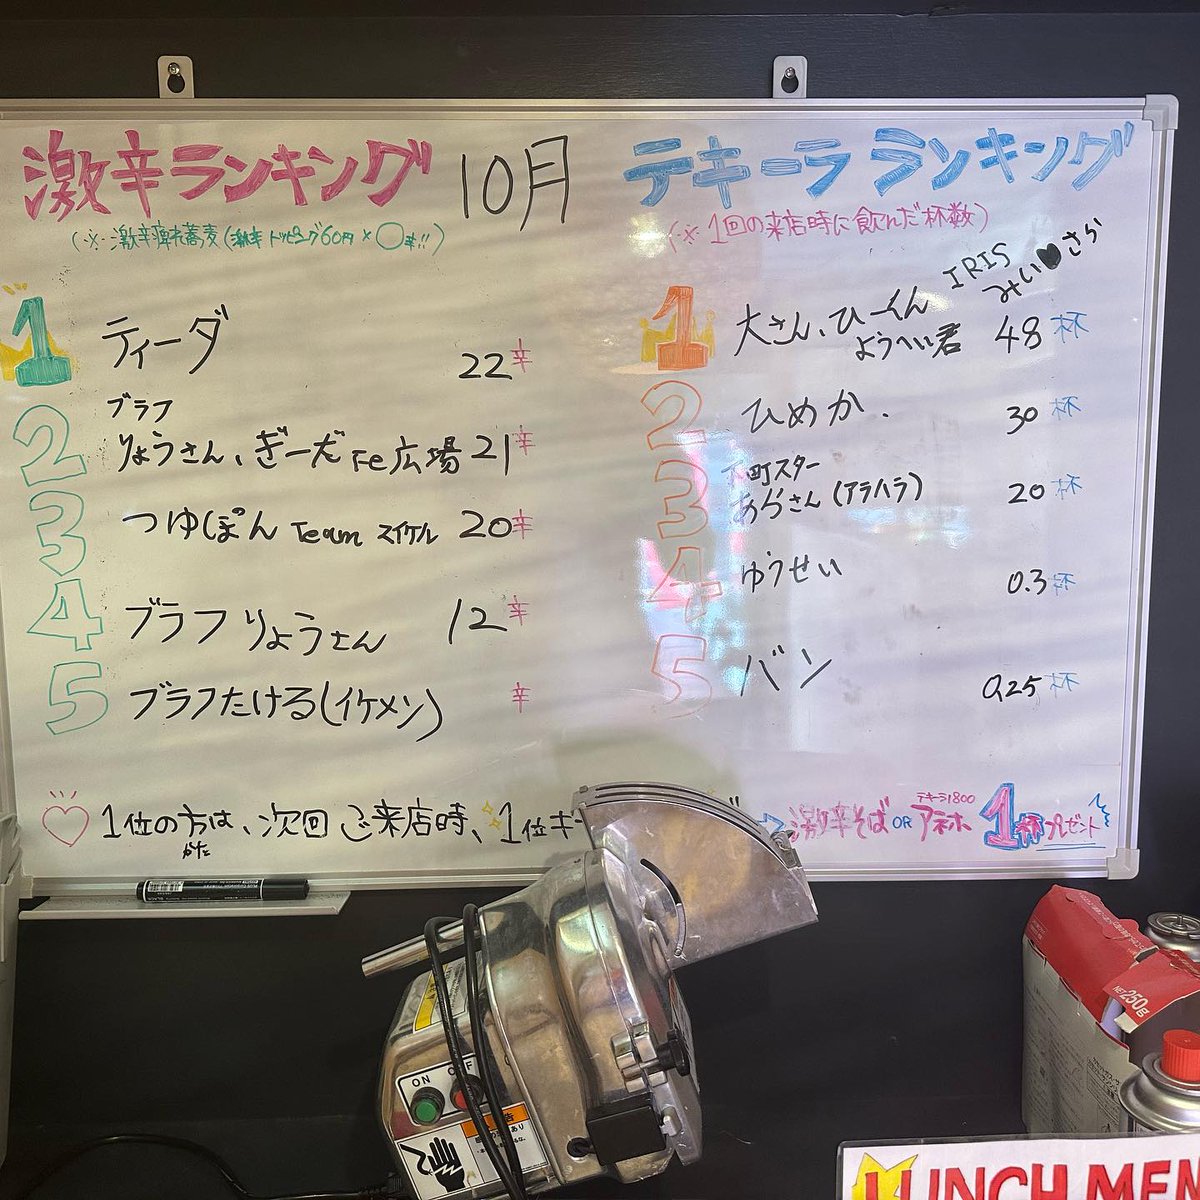 激辛ランキング 10月 テキーラ ランキング
(※激辛 蕎麦(激辛トッピング60円×○辛!!)
(※1回の来店時に飲んだ杯数)
1 ティーダ 22辛
2 ブラフ
りょうさん、ぎーだ Fe広場 21辛
3 つゆぽん Team スイケル 20辛
4 ブラフりょうさん 12辛
5 ブラフたける(イケメン) 辛
IRIS
みい♥さら
1 大さん、ひーくん
ようへい君 48杯
2 ひめか. 30杯
3 町スター
あらさん(アラハラ) 20杯
4 ゆうせい 0.3杯
5 バン 0.25杯
♡1位の方は、次回ご来店時、1位ギ
かた
→激辛そば OR アネホ 1杯プレゼント
テキーラ1800
ON OFF
NET 250g
LUNCH MEN